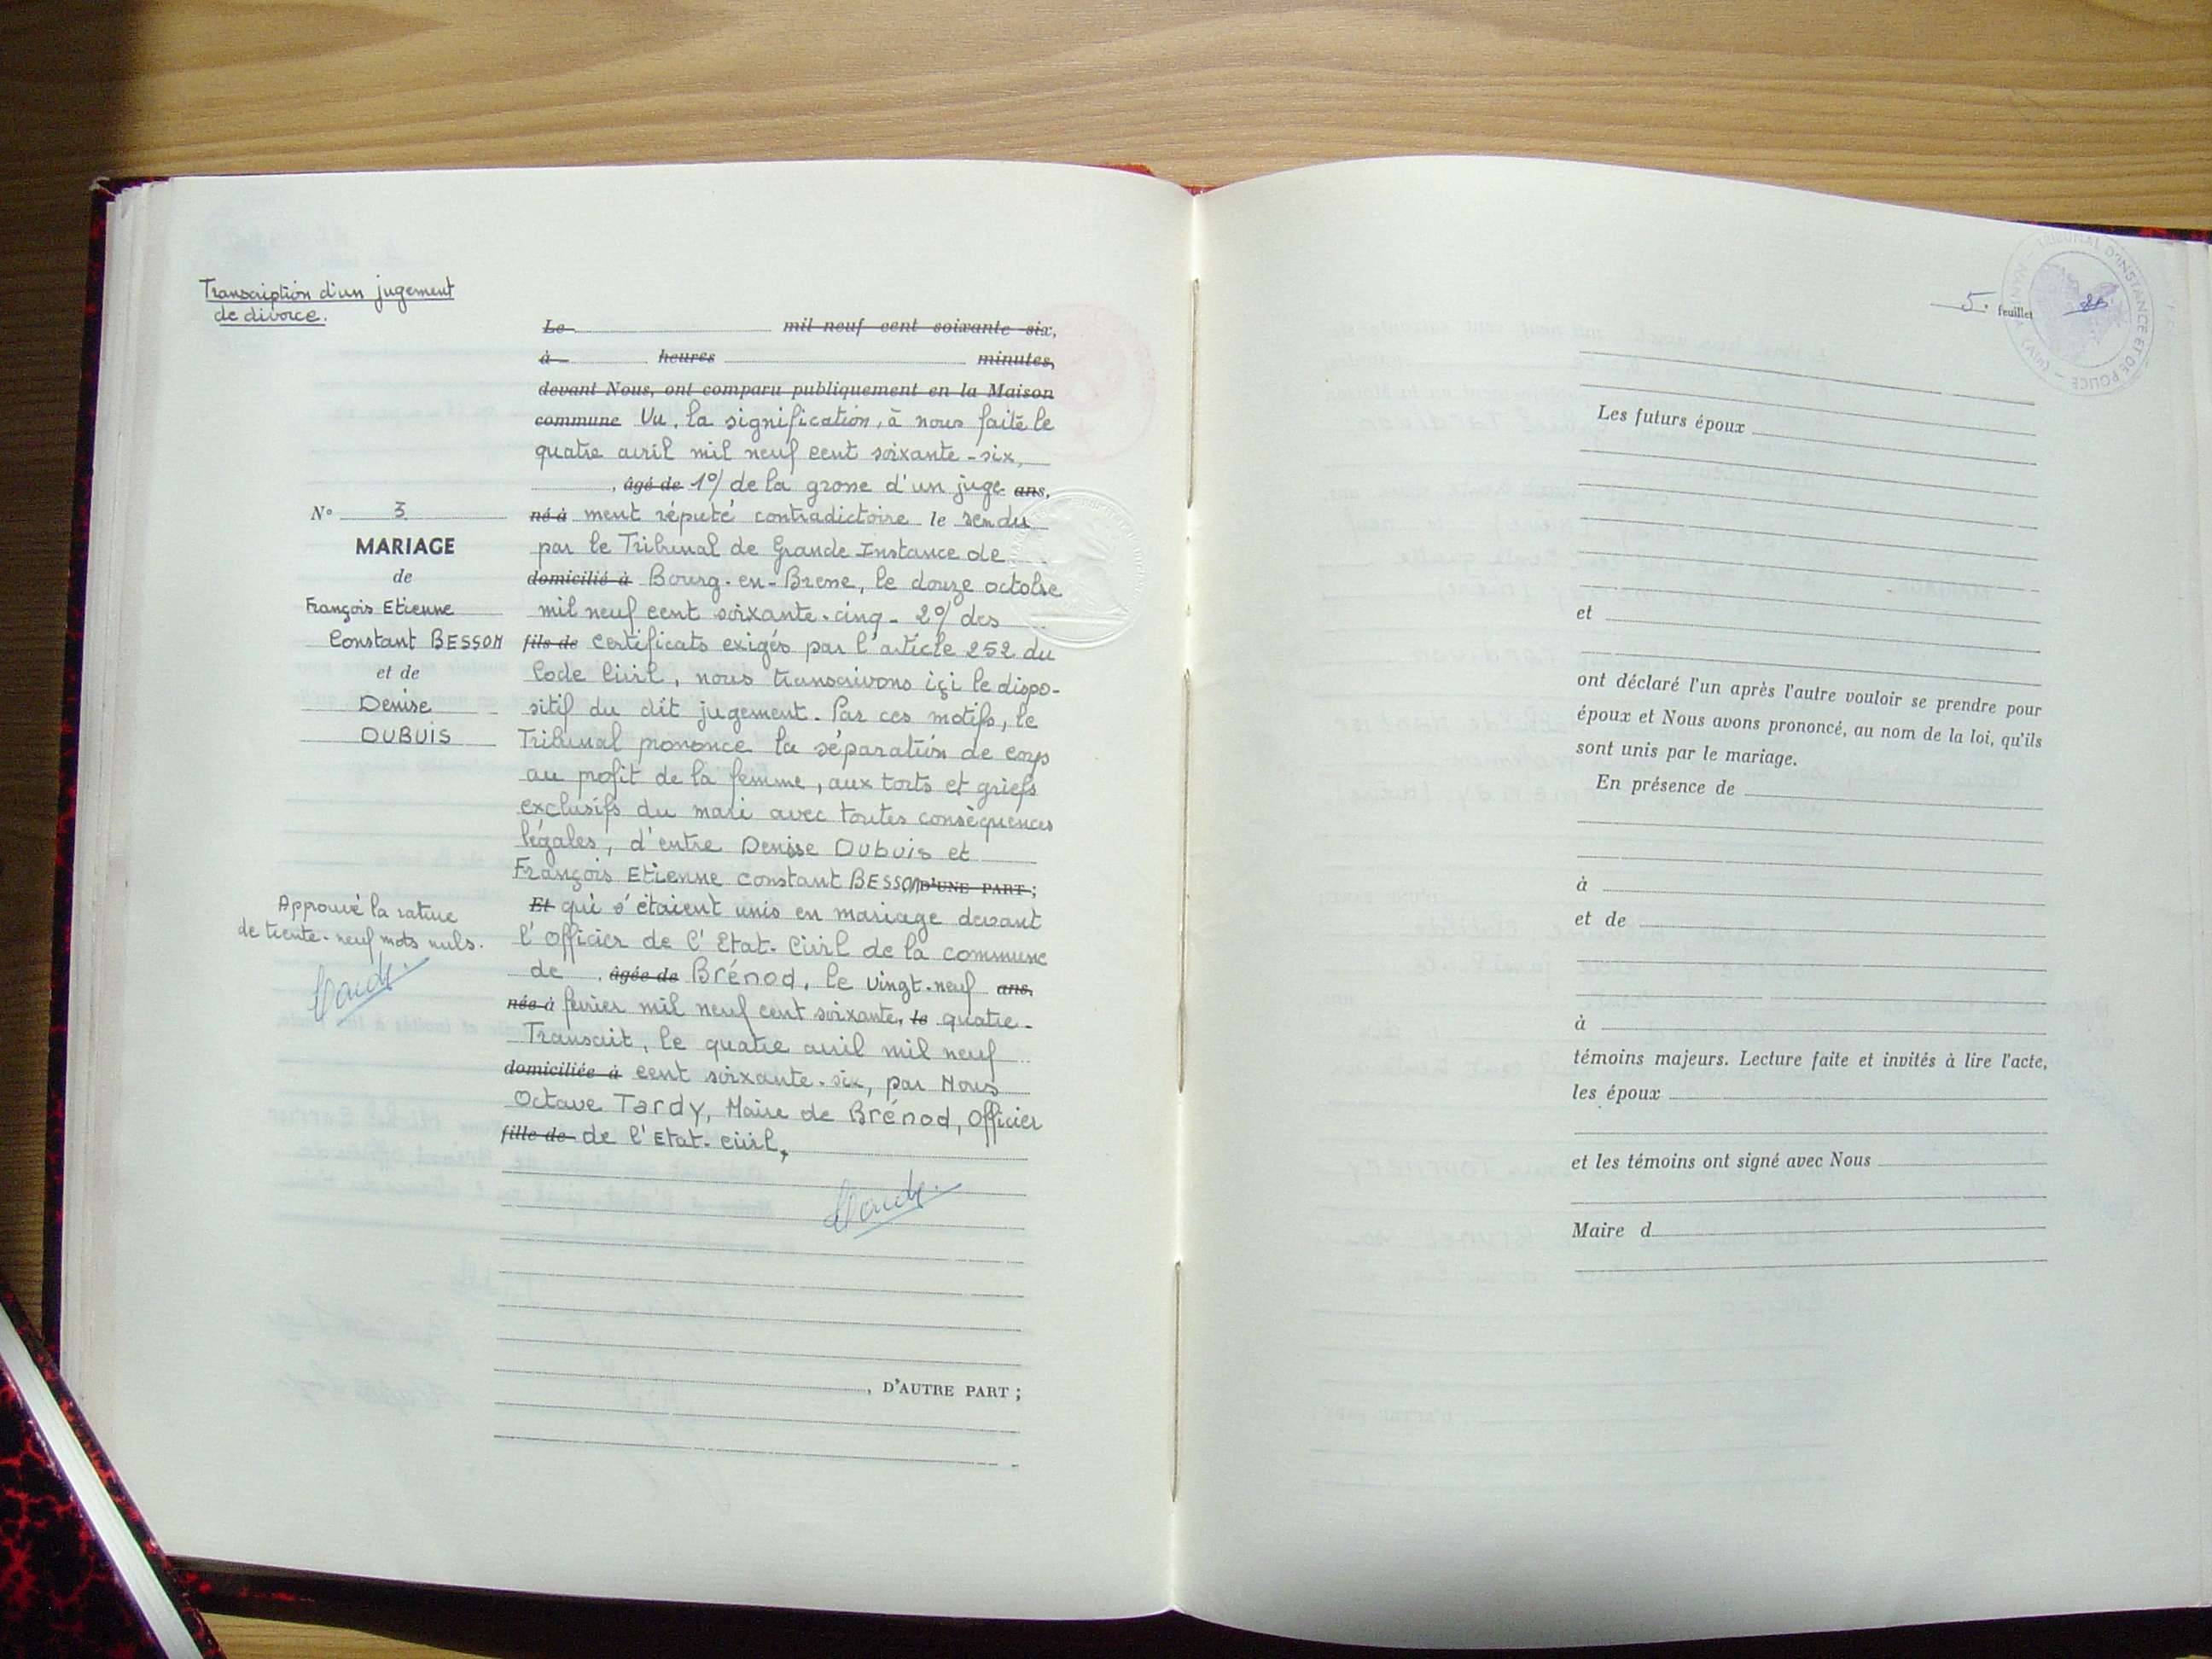 Transcription d'un jugement
de divorce.
Le mil neuf cent soixante six,
à heures minutes,
devant Nous, ont comparu publiquement en la Maison
commune Vu, la signification, à nous faite le
quatre avril mil neuf cent soixante-six,
, âgé de 1°/ de la grosse d'un juge ans,
né à ment réputé contradictoire le rendu
par le Tribunal de Grande Instance de
domicilié à Bourg-en-Bresse, le douze octobre
mil neuf cent soixante-cinq - 2°/ des
fils de certificats exigés par l'article 252 du
Code Civil, nous transcrivons içi le dispo-
sitif du dit jugement. Par ces motifs, le
Tribunal prononce la séparation de corps
au profit de la femme, aux torts et griefs
exclusifs du mari avec toutes conséquences
légales, d'entre Denise Dubuis et
François Etienne Constant BESSON D'UNE PART ;
Et qui s'étaient unis en mariage devant
l'Officier de l'Etat-Civil de la commune
de , âgée de Brénod, le vingt-neuf ans,
née à fevrier mil neuf cent soixante, le quatre-
Transcrit, le quatre avril mil neuf
domiciliée à cent soixante-six, par Nous
Octave Tardy, Maire de Brénod, Officier
fille de de l'Etat-civil,
, D'AUTRE PART ;
N° 3
MARIAGE
de
François Etienne
Constant BESSON
et de
Denise
DUBUIS
Approuvé la rature
de trente-neuf mots nuls.
5e feuillet
TRIBUNAL D'INSTANCE ET DE POLICE
(Ain)
Les futurs époux
et
ont déclaré l'un après l'autre vouloir se prendre pour
époux et Nous avons prononcé, au nom de la loi, qu'ils
sont unis par le mariage.
En présence de
à
et de
à
témoins majeurs. Lecture faite et invités à lire l'acte,
les époux
et les témoins ont signé avec Nous
Maire d